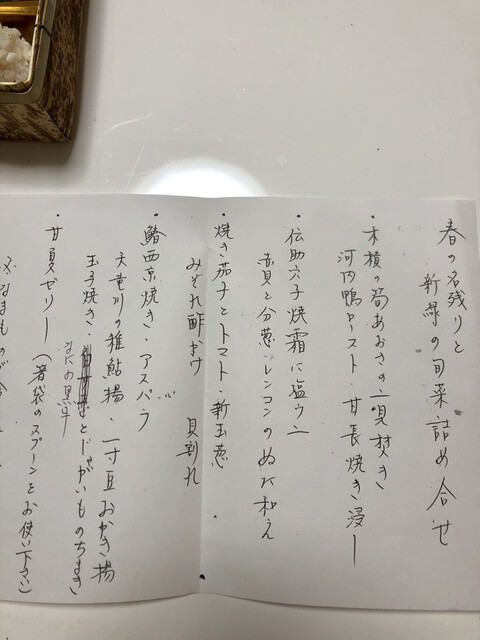 春の名残りと
新緑の旬菜詰め合せ
・木積の筍あおさの一見焚き
河内鴨ロースト・甘長焼き浸し
・伝助穴子焼霜に塩ウニ
赤貝と分葱・レンコンのぬた和え
・焼き茄子とトマト・新玉葱
みぞれ酢かけ 貝割れ
・鰆西京焼き・アスパラ
天竜川の稚鮎揚・一寸豆おかき揚
玉子焼き・
・甘夏ゼリー(箸袋のスプーンをお使い下さい)